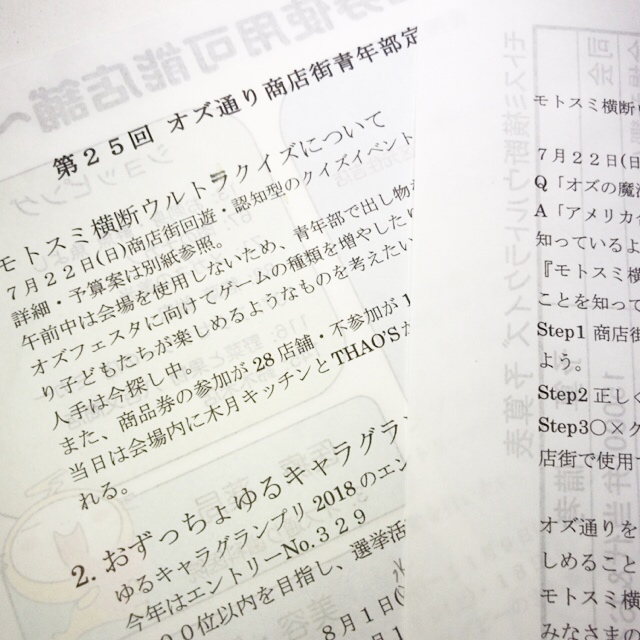 第２５回 オズ通り商店街青年部定
モトスミ横断ウルトラクイズについて
７月２２日(日)商店街回遊・認知型のクイズイベント
詳細・予算案は別紙参照。
午前中は会場を使用しないため、青年部で出し物を
オズフェスタに向けてゲームの種類を増やしたり
り子どもたちが楽しめるようなものを考えたい
人手は今探し中。
また、商品券の参加が 28 店舗・不参加が 1
当日は会場内に木月キッチンとTHAO'Sが
れる。
2. おずっちょゆるキャラグラン
ゆるキャラグランプリ 2018 のエン
今年はエントリーNo.３２９
００位以内を目指し、選挙活
８月１(
８
モトスミ横断
７月２２日(日
Q「オズの魔法
A「アメリカ
知っているよ
『モトスミ横
ことを知って
Step1 商店街
よう。
Step2 正しく
Step3〇×ク
店街で使用
オズ通りを
しめること
モトスミ横
みなさま